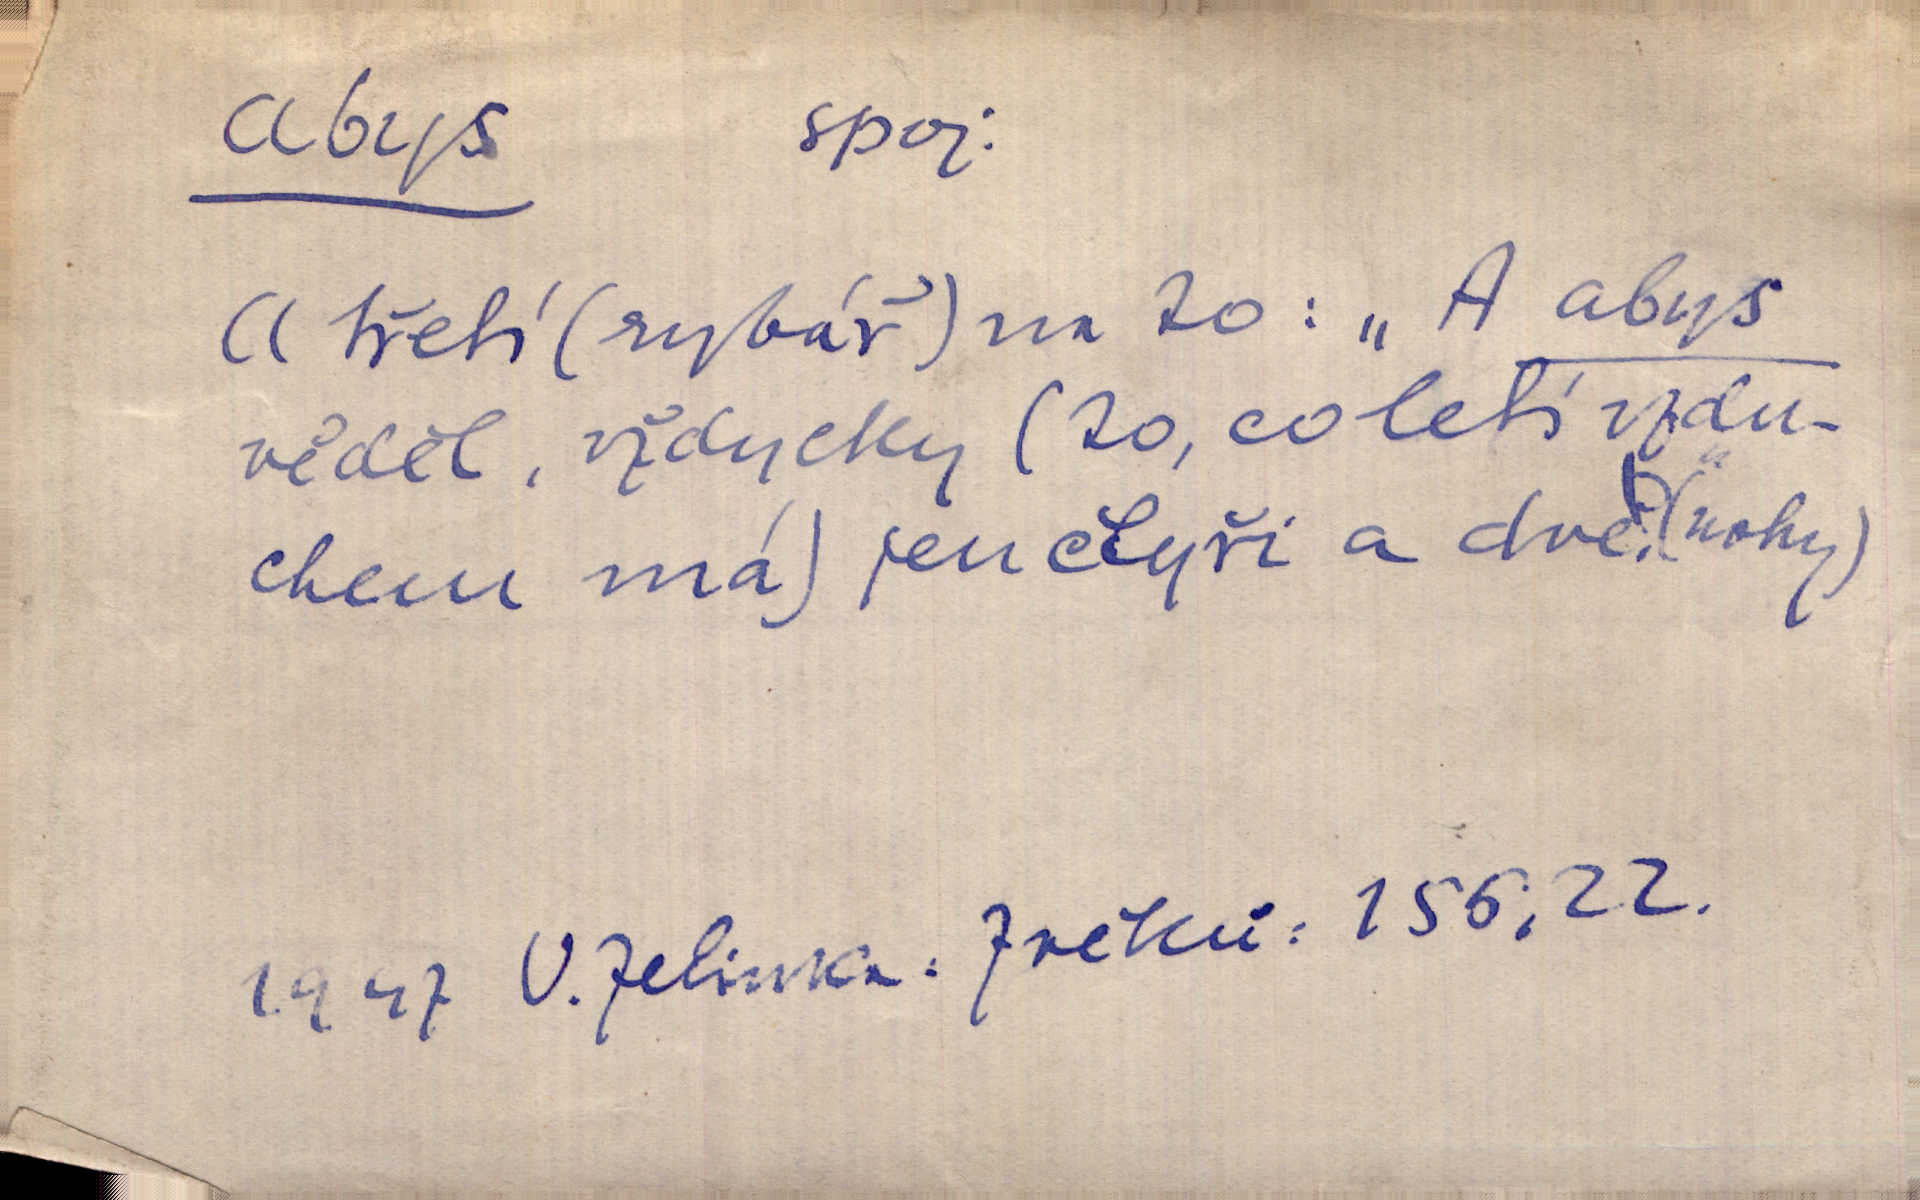 abys spoj:
A třetí (rybář) na to: „A abys
věděl, vždycky (to, co letí vzdu-
chem má) jen čtyři a dvě." (nohy)
1947 V. Jelínka: Z věků: 156,22.